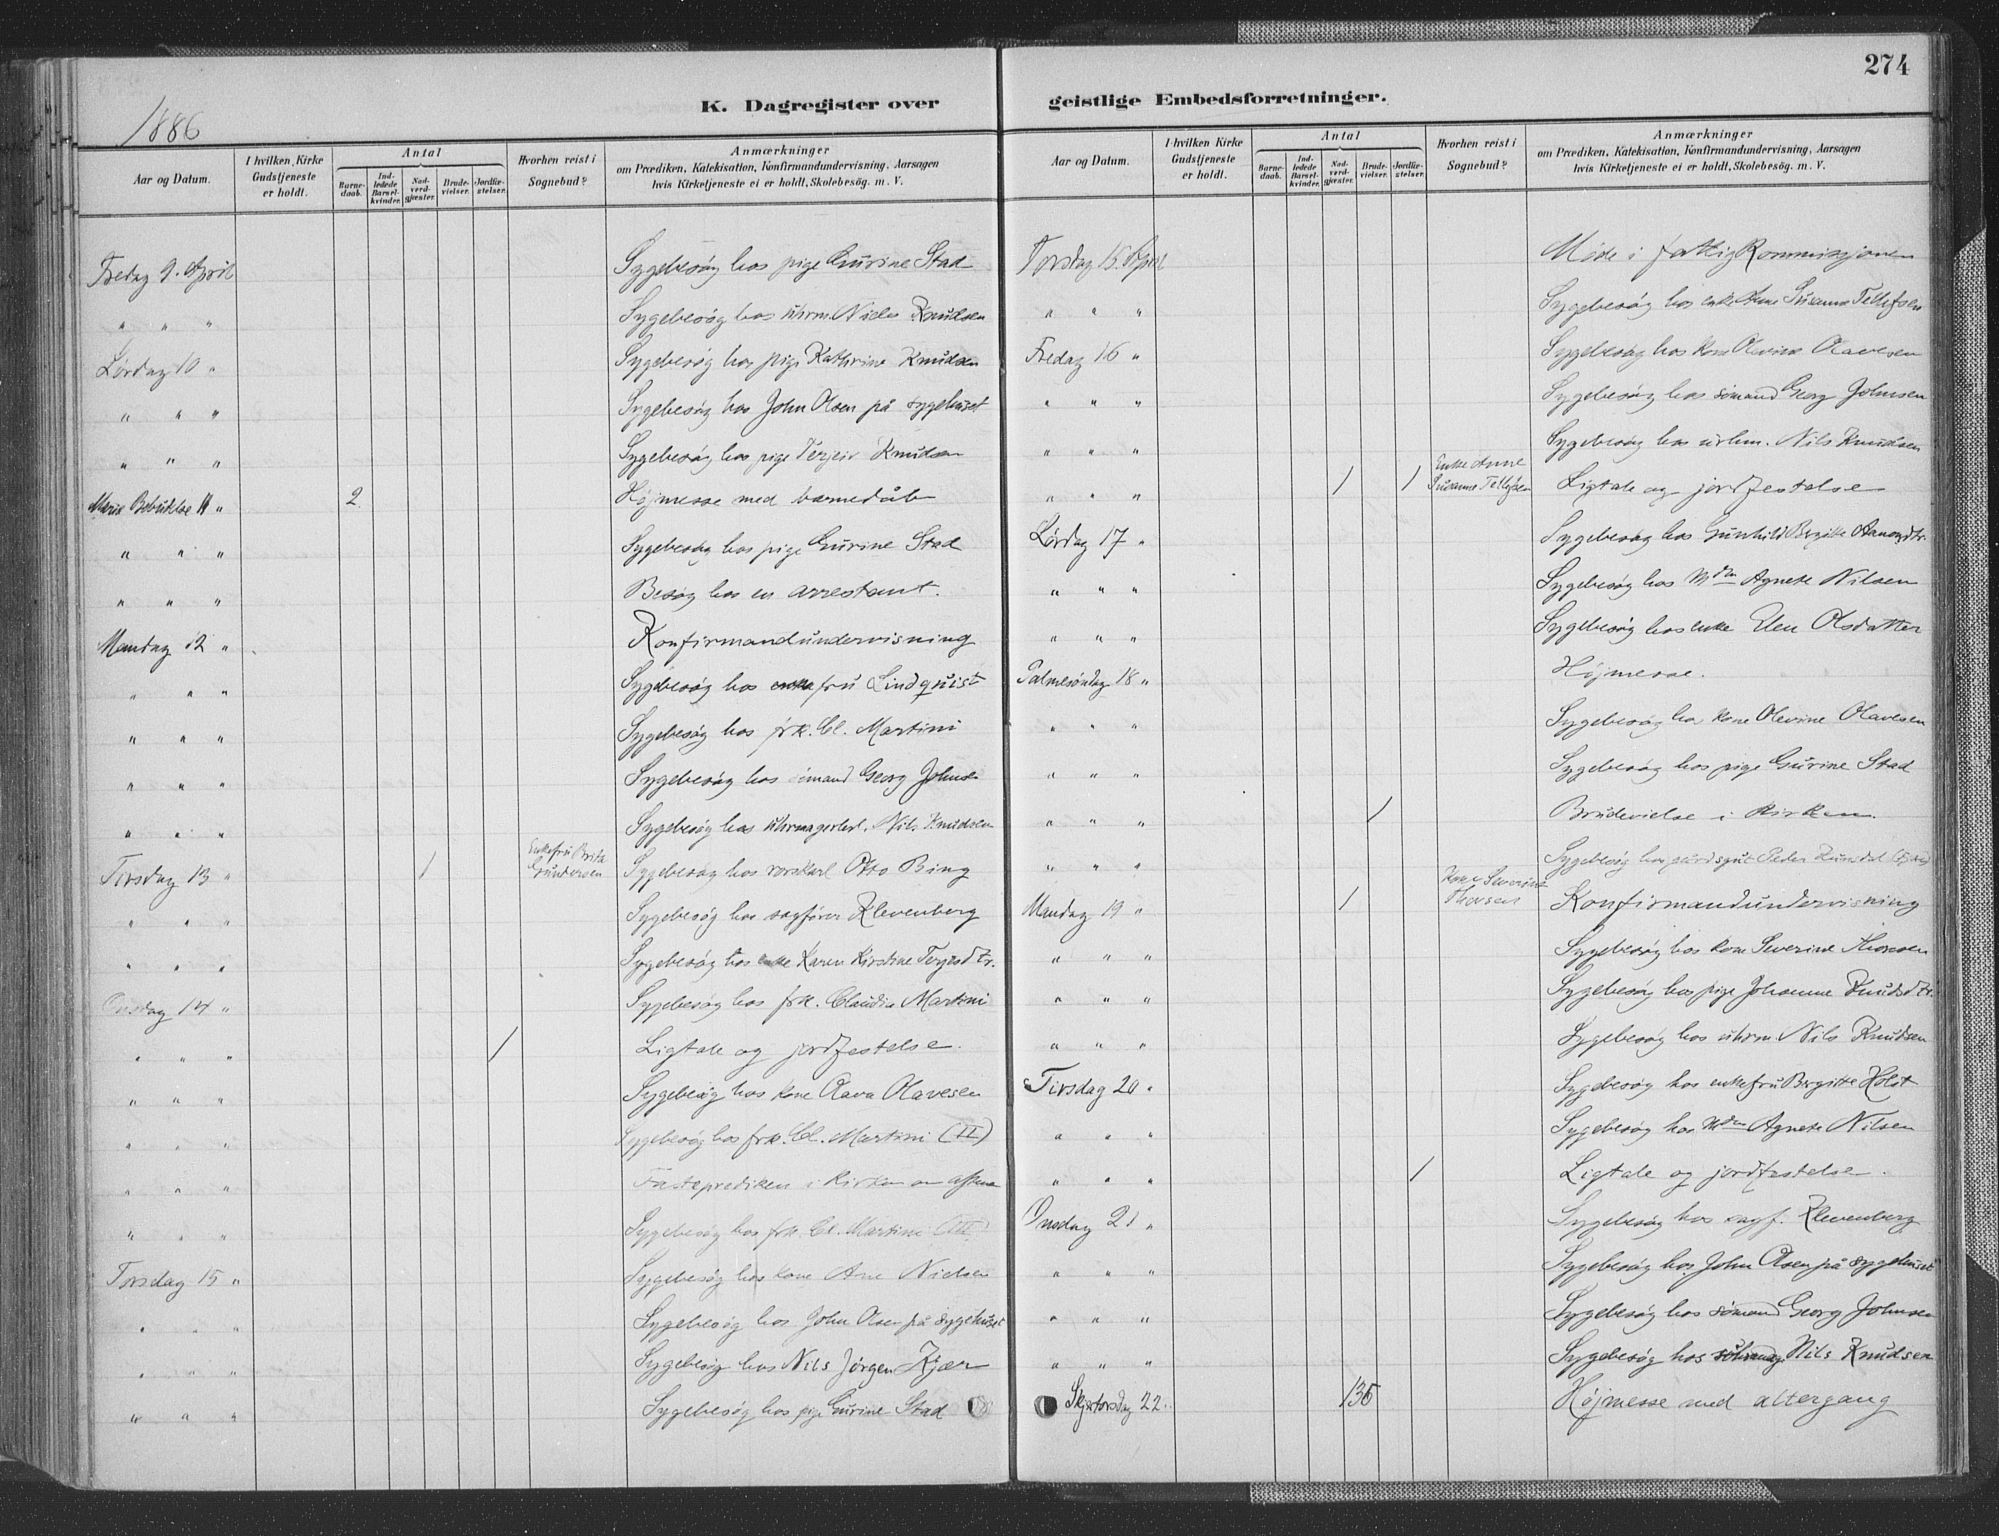 274
1886
K. Dagregister over geistlige Embedsforretninger.
Aar og Datum.
I hvilken Kirke Gudstjeneste er holdt.
Antal
Barnedaab.
Indledede Barselkvinder.
Nadverdgjæster.
Brudevielser.
Jordfæstelser.
Hvorhen reist i Sognebud?
Anmærkninger
om Prædiken, Katekisation, Konfirmandundervisning, Aarsagen
hvis Kirketjeneste ei er holdt, Skolebesøg. m. V.
Fredag 9. April Sygebesøg hos pige Gurine Stad
" " " Sygebesøg hos uhrm. Niels Knudsen
Lørdag 10 " Sygebesøg hos pige Kathrine Knudsen
" " " Sygebesøg hos John Olsen på sygehuset
" " " Sygebesøg hos pige Terjeir Knudsen
Mariæ Bebudelse 11 " 2 Højmesse med barnedåb
" " " Sygebesøg hos pige Gurine Stad
" " " Besøg hos en arrestant.
Mandag 12 " Konfirmandundervisning
" " " Sygebesøg hos fru Lindquist
" " " Sygebesøg hos frk. Cl. Martini
" " " Sygebesøg hos sømand Georg Johnsen
" " " Sygebesøg hos Nils Knudsen
Tirsdag 13 " 1 Enkefru Brita Gundersen Sygebesøg hos Otto Bing
" " " Sygebesøg hos sagfører Klevenberg
" " " Sygebesøg hos enke Karen Kirstine Terjesdtr.
Onsdag 14 " Sygebesøg hos frk. Claudia Martini
" " " 1 Ligtale og jordfestelse.
" " " Sygebesøg hos kone Olava Olavesen
" " " Sygebesøg hos frk. Cl. Martini (II)
" " " Fasteprediken i kirken om aftenen
" " " Sygebesøg hos frk. Cl. Martini (III)
Torsdag 15 " Sygebesøg hos kone Ane Nielsen
" " " Sygebesøg hos John Olsen på sygehuset
" " " Sygebesøg hos Nils Jørgen Kjær
" " " Sygebesøg hos pige Gurine Stad
Aar og Datum.
I hvilken Kirke Gudstjeneste er holdt.
Antal
Barnedaab.
Indledede Barselkvinder.
Nadverdgjæster.
Brudevielser.
Jordfæstelser.
Hvorhen reist i Sognebud?
Anmærkninger
om Prædiken, Katekisation, Konfirmandundervisning, Aarsagen
hvis Kirketjeneste ei er holdt, Skolebesøg. m. V.
Torsdag 15. April Møde i fattigkommissjonen
" " " Sygebesøg hos enke Anne Susanne Tellefsen
Fredag 16 " Sygebesøg hos kone Olevine Olavesen
" " " Sygebesøg hos sømand Georg Johnsen
" " " Sygebesøg hos Nils Knudsen
" " " 1 1 Enke Anne Susanne Tellefsen Ligtale og jordfestelse
Lørdag 17 " Sygebesøg hos Gunhild Birgitte Aanonsdtr.
" " " Sygebesøg hos Mdm Agnete Nilsen
" " " Sygebesøg hos enke Elen Olsdatter
Palmesøndag 18 " Højmesse.
" " " Sygebesøg hos kone Olevine Olavesen
" " " Sygebesøg hos pige Gurine Stad
" " " 1 Brudevielse i kirken.
" " " Sygebesøg hos Peder
Mandag 19 " 1 Kone Severine Thorsen Konfirmandundervisning
" " " Sygebesøg hos kone Severine Thorsen
" " " Sygebesøg hos pige Johanne Knudsdtr.
" " " Sygebesøg hos uhrm. Nils Knudsen
Tirsdag 20 " Sygebesøg hos enkefru Bergitte Holst
" " " Sygebesøg hos Mdm Agnete Nilsen
" " " 1 Ligtale og jordfestelse.
Onsdag 21 " Sygebesøg hos sagf. Klevenberg
" " " Sygebesøg hos John Olsen på sygehuset
" " " Sygebesøg hos sømand Georg Johnsen
" " " Sygebesøg hos Nils Knudsen
Skjærtorsdag 22 " 136 Højmesse med altergang